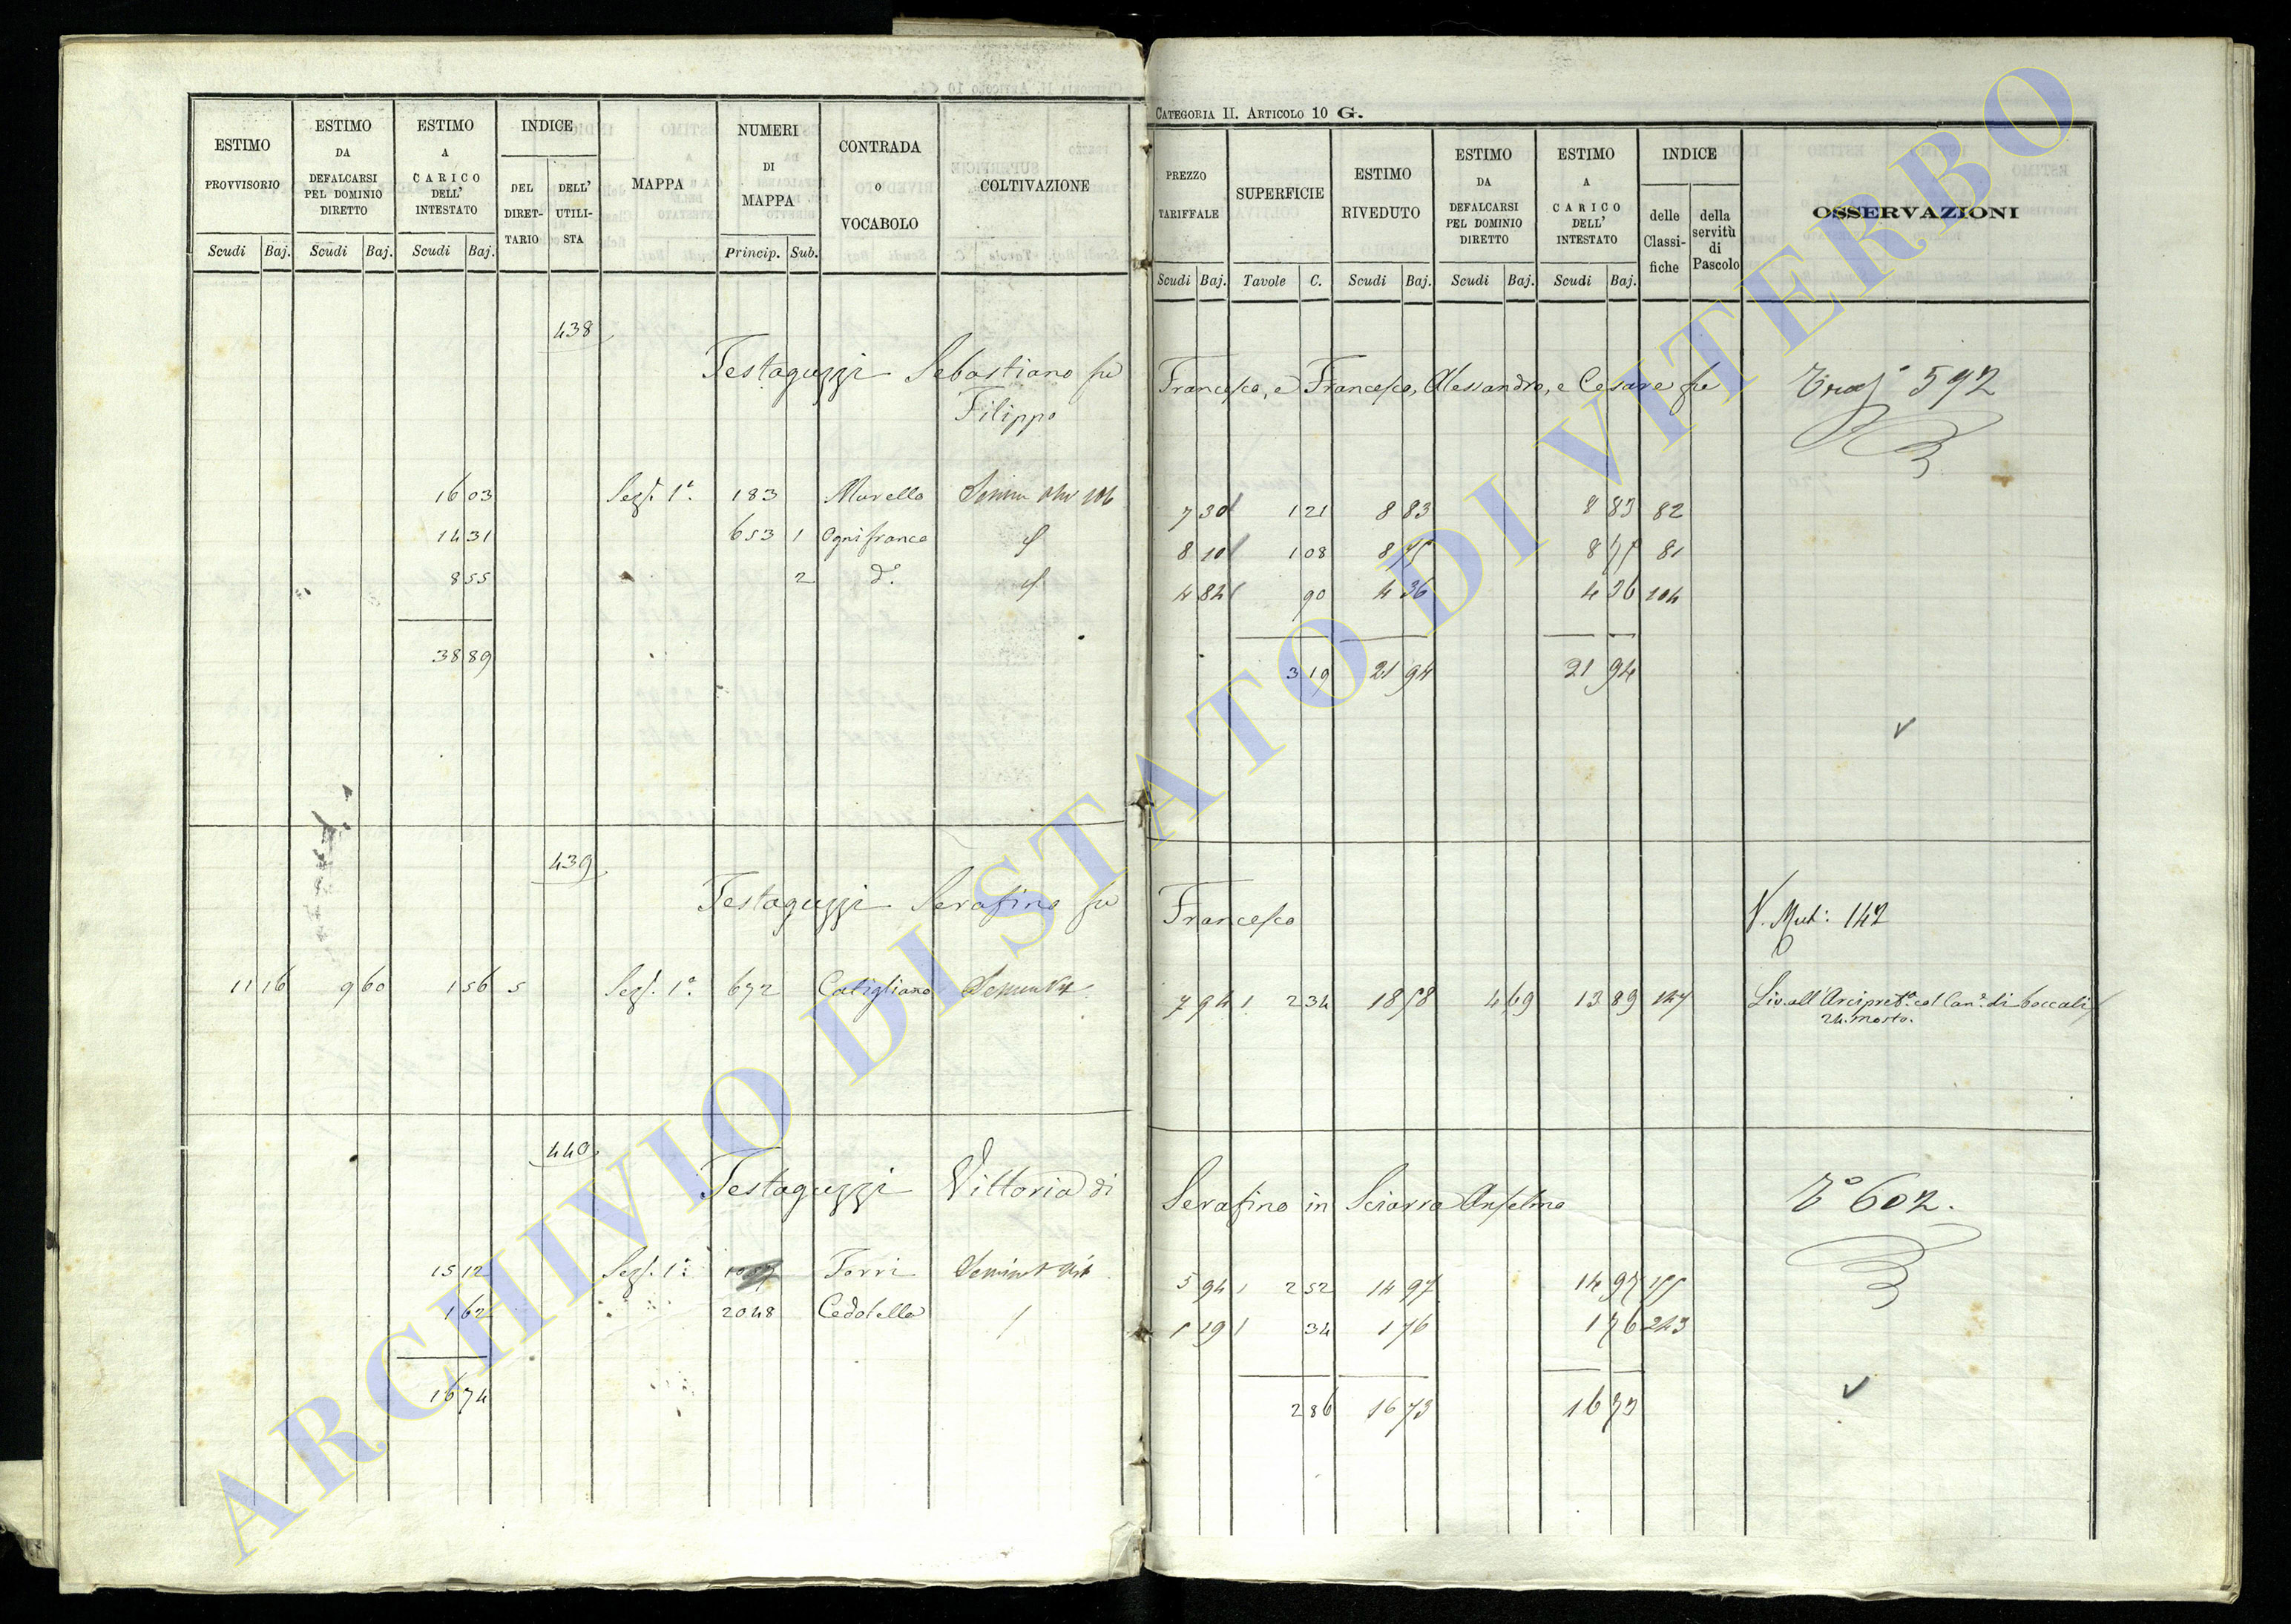 CATEGORIA II. ARTICOLO 10 G.
ESTIMO PROVVISORIO Scudi Baj.
ESTIMO DA DEFALCARSI PEL DOMINIO DIRETTO Scudi Baj.
ESTIMO A CARICO DELL' INTESTATO Scudi Baj.
INDICE DEL DIRET-TARIO DELL' UTILI-STA
MAPPA
NUMERI DI MAPPA Princip. Sub.
CONTRADA o VOCABOLO
COLTIVAZIONE
PREZZO TARIFFALE Scudi Baj.
SUPERFICIE Tavole C.
ESTIMO RIVEDUTO Scudi Baj.
ESTIMO DA DEFALCARSI PEL DOMINIO DIRETTO Scudi Baj.
ESTIMO A CARICO DELL' INTESTATO Scudi Baj.
INDICE delle Classi-fiche della servitù di Pascolo
OSSERVAZIONI
438
Testaguzzi Sebastiano fu Francesco, e Francesco, Alessandro, e Cesare fu 592
Filippo
16 03 Sez. 1ª 183 Murella 7 30 1 21 8 83 8 83 82
14 31 653 1 Ognifranco 8 10 1 08 8 75 8 75 81
8 55 2 dº 4 84 90 4 36 4 36 104
38 89 3 19 21 94 21 94
439
Testaguzzi Serafino fu Francesco V. Mut: 142
11 16 9 60 1 56 5 Sez. 1ª 672 Catigliano 7 94 1 2 34 18 58 4 69 13 89 147 Liv. all'Arcipret. col Can. di boccali
24. mosto.
440
Testaguzzi Vittoria di Serafino in Sciarra Anselmo Tº 602.
15 12 Sez. 1ª Torri 5 94 1 2 52 14 97 14 97
1 62 2048 Cedotella 1 19 1 34 1 76 1 76 243
16 74 2 86 16 73 16 73
ARCHIVIO DI STATO DI VITERBO